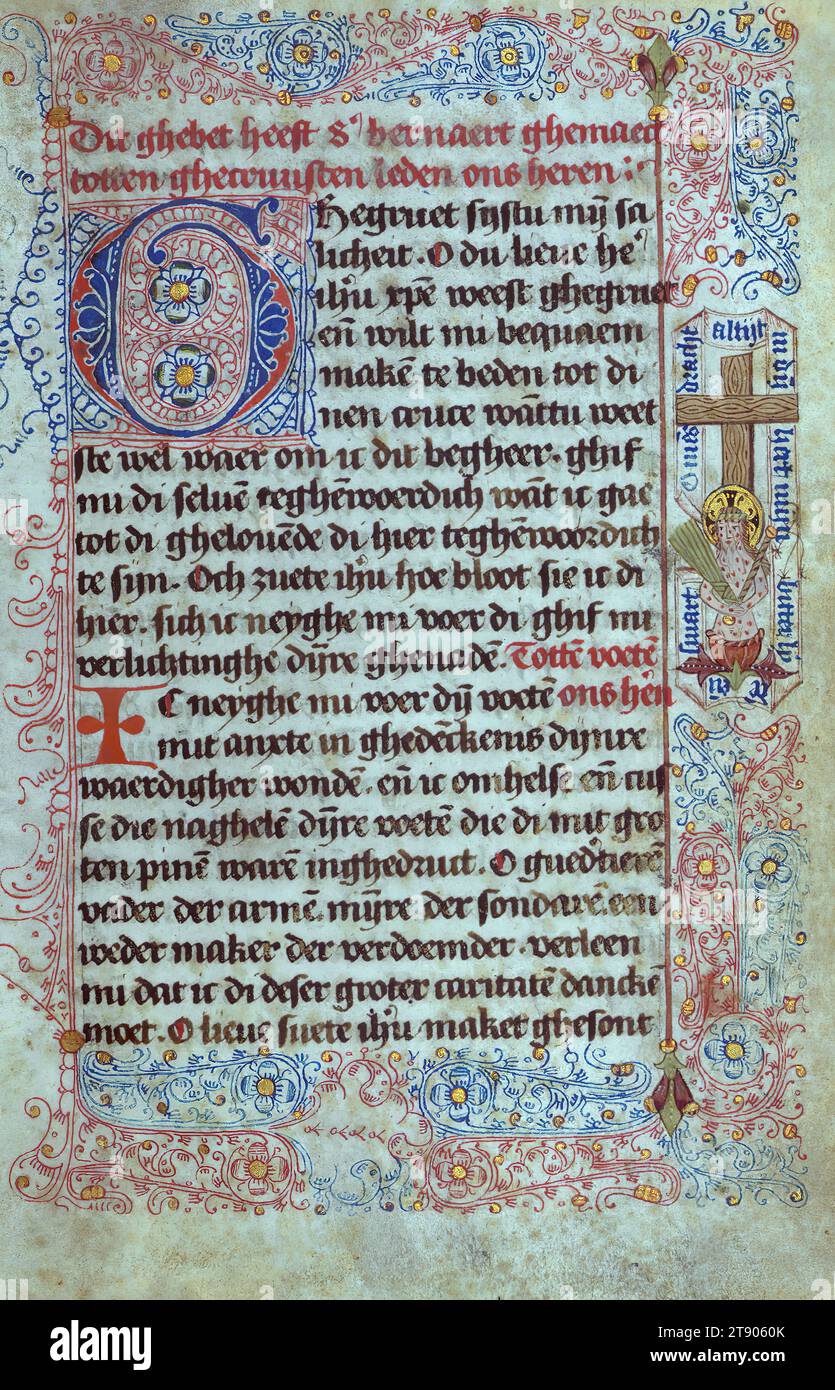 Dit ghebet heeft Sᵗ bernaert ghemaect
totten ghecruusten leden ons heren :
GHegruet systu myn sa
licheit . O du lieue heᵉ
ihũ xpe weest ghegruet
eñ wilt mi bequaem
makẽ te beden tot di
nen cruce wãttu weet
ste wel waer om ic dit begheer . ghif
mi di seluẽ teghẽwoerdich wãt ic gae
tot di ghelouẽde di hier teghẽwoordich
te sijn . Och zuete ihũ hoe bloot sie ic di
hier . sich ic neyghe mi voer di ghif mi
verlichtinghe dijre ghenadẽ . Tottẽ voetẽ
IC neyghe mi voer dij voetẽ ons hẽn
mit anxte in ghedẽckenis dijnre
waerdigher wondẽ . eñ ic omhelse eñ cus
se die naghelẽ dijre voetẽ die di mit gro
ten pinẽ warẽ inghedruct . O guedᵉtierẽ
vader der armẽ . mijre der sondarẽ . een
weder maker der verdoemder . verleen
mi dat ic di deser groter caritatẽ danckẽ
moet . O lieue suete ihũ maket ghesont
O mẽs dracht altijt in dij hert mijn bitter lij
swart
alamy
Image ID: 2T9060K
www.alamy.com